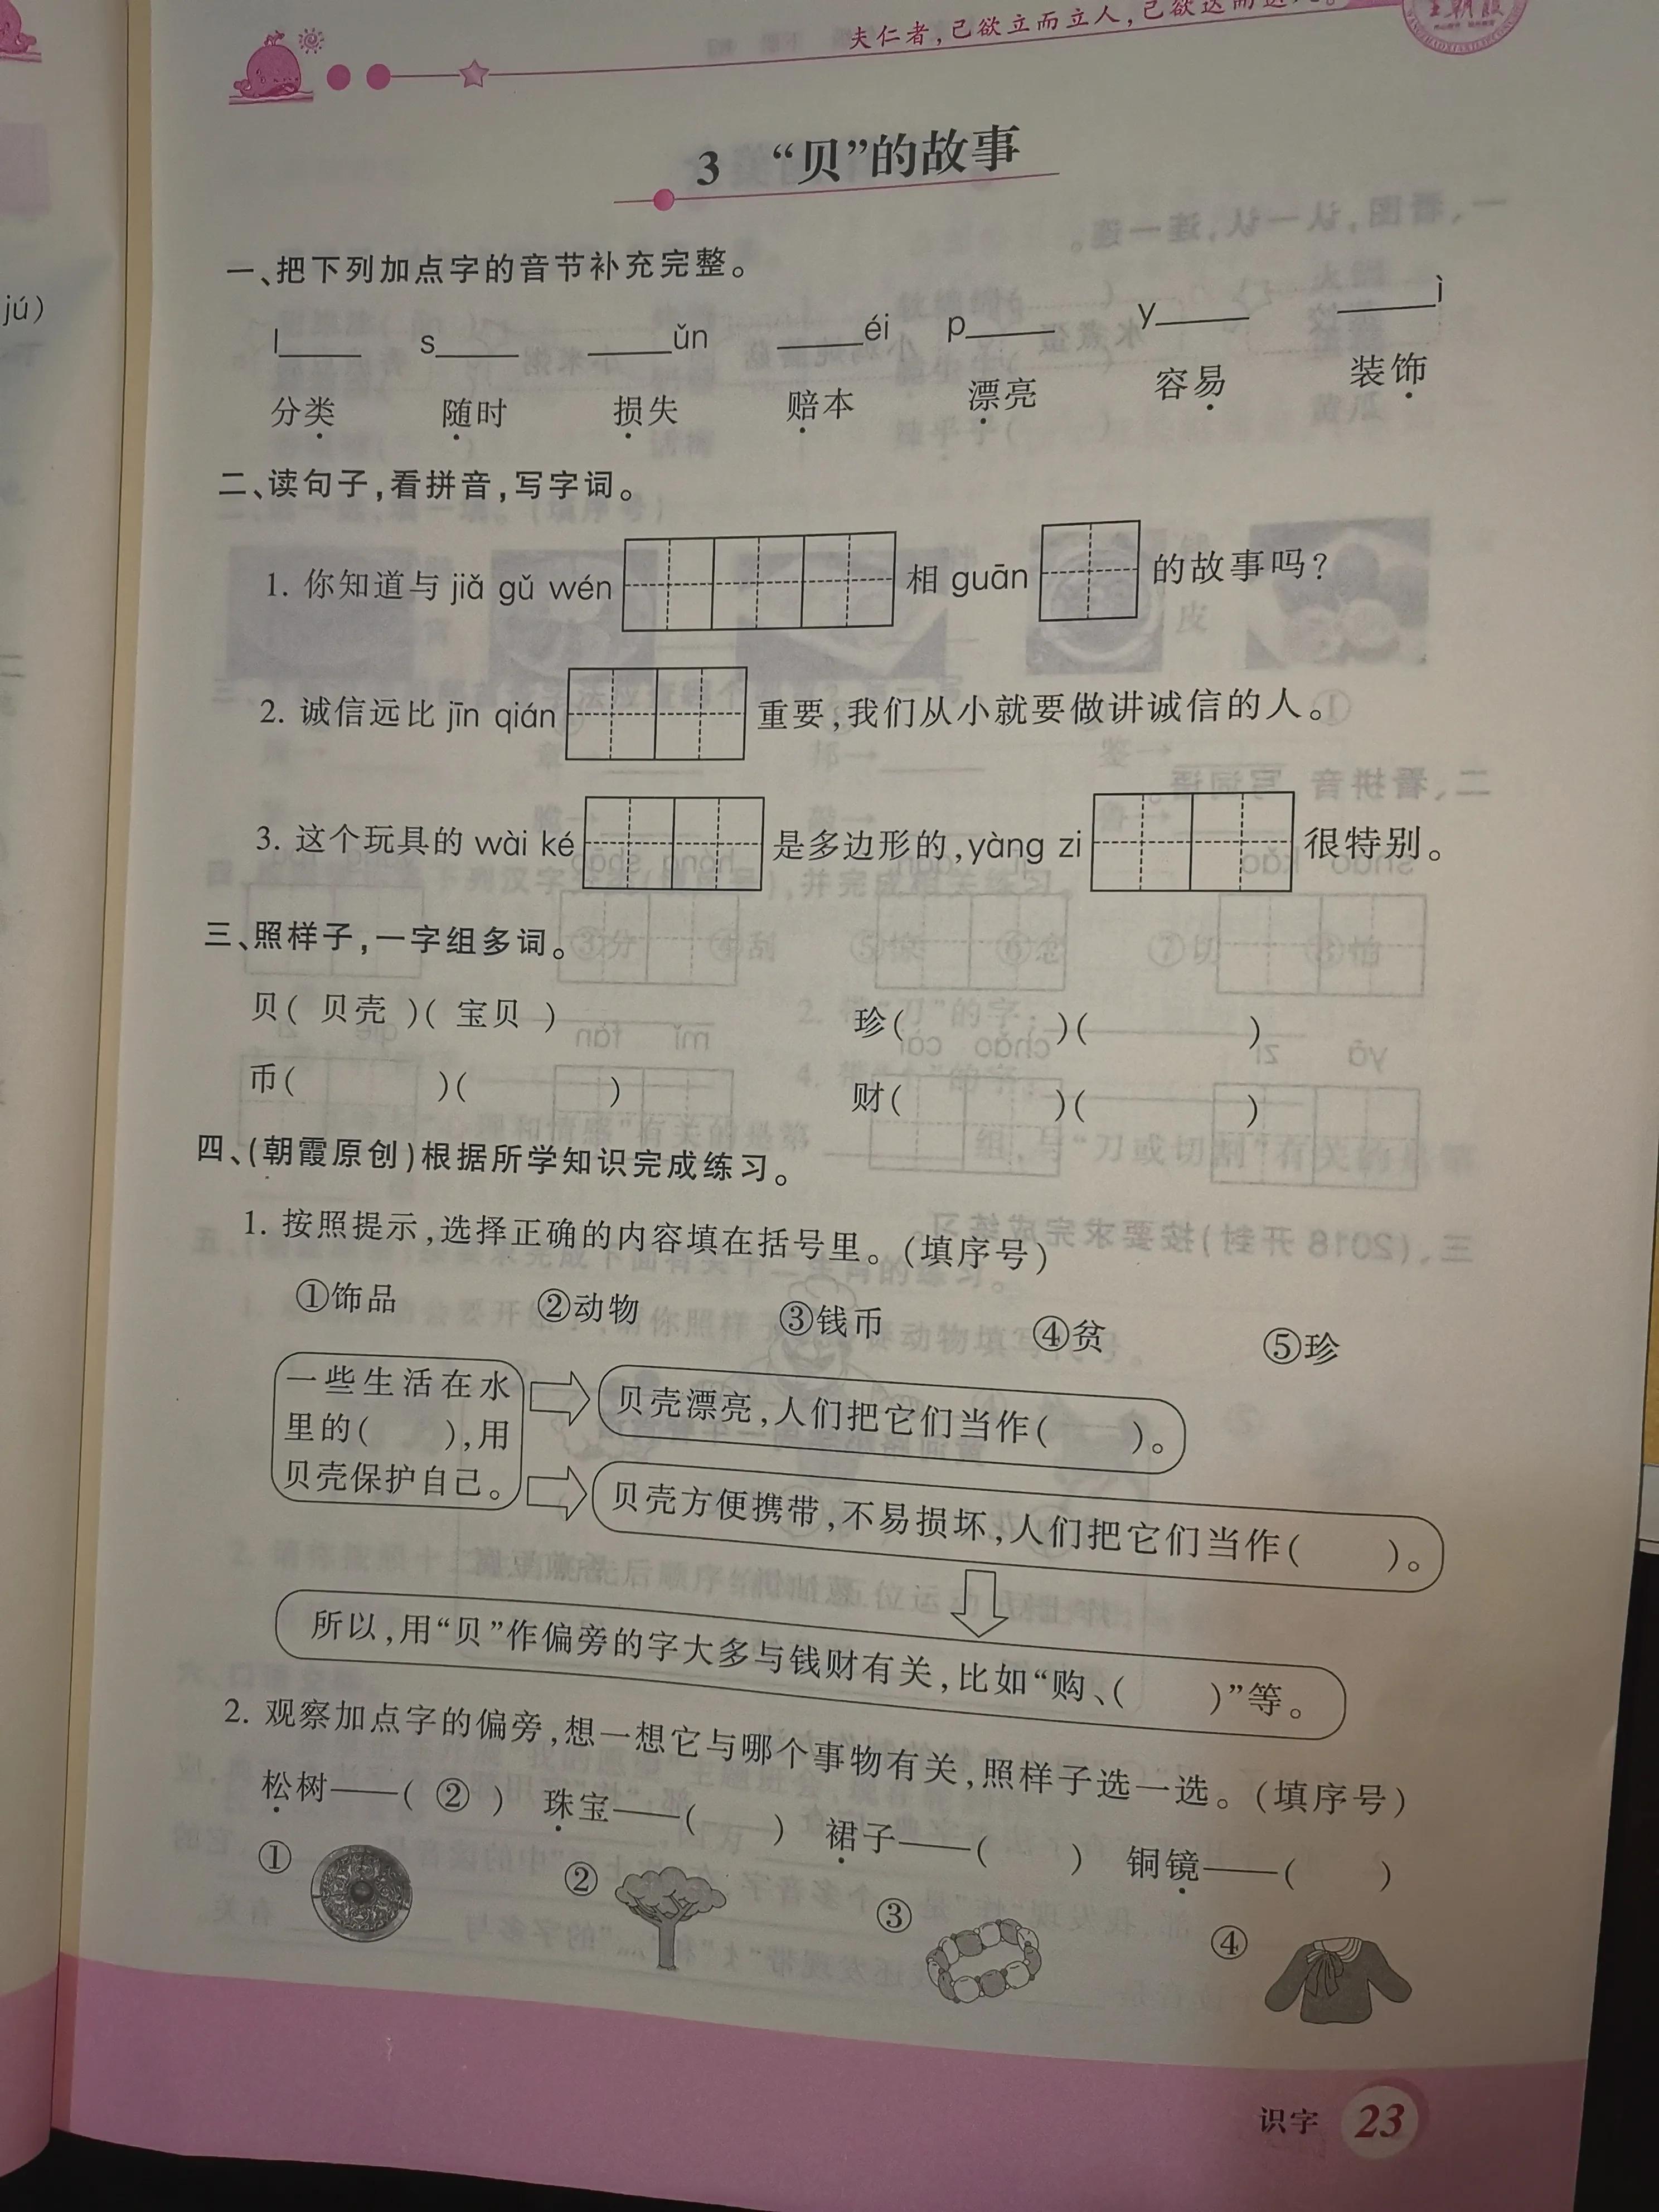 夫仁者，己欲立而立人，己欲达而达人。
王朝霞
3 “贝”的故事
一、把下列加点字的音节补充完整。
l____ s____ ____ǔn ____éi p____ y____ ____ì
分类 随时 损失 赔本 漂亮 容易 装饰
二、读句子，看拼音，写字词。
1. 你知道与 jiǎ gǔ wén 相 guān 的故事吗？
2. 诚信远比 jīn qián 重要，我们从小就要做讲诚信的人。
3. 这个玩具的 wài ké 是多边形的，yàng zi 很特别。
三、照样子，一字组多词。
贝( 贝壳 )( 宝贝 ) 珍( )( )
币( )( ) 财( )( )
四、(朝霞原创)根据所学知识完成练习。
1. 按照提示，选择正确的内容填在括号里。(填序号)
①饰品 ②动物 ③钱币 ④贫 ⑤珍
一些生活在水
里的( )，用
贝壳保护自己。
贝壳漂亮，人们把它们当作( )。
贝壳方便携带，不易损坏，人们把它们当作( )。
所以，用“贝”作偏旁的字大多与钱财有关，比如“购、( )”等。
2. 观察加点字的偏旁，想一想它与哪个事物有关，照样子选一选。(填序号)
松树——( ② ) 珠宝——( ) 裙子——( ) 铜镜——( )
① ② ③ ④
识字 23
jú)